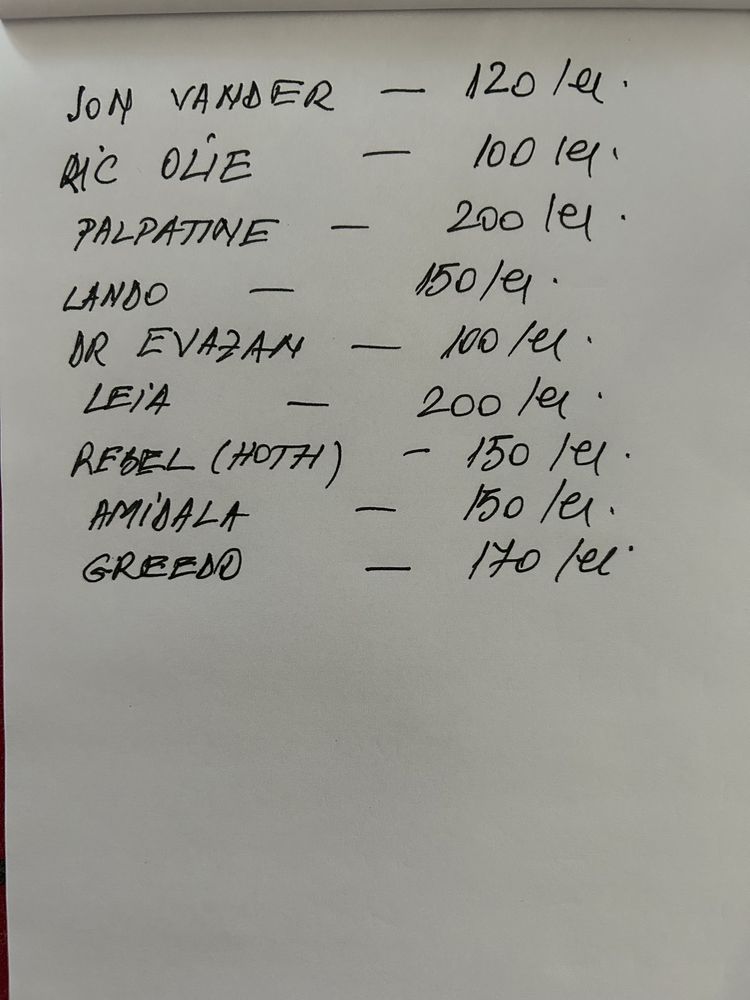 JON VANDER — 120 lei.
RIC OLIE — 100 lei.
PALPATINE — 200 lei.
LANDO — 150 lei.
DR EVAZAN — 100 lei.
LEIA — 200 lei.
REBEL (HOTH) — 150 lei.
AMIDALA — 150 lei.
GREEDO — 170 lei.